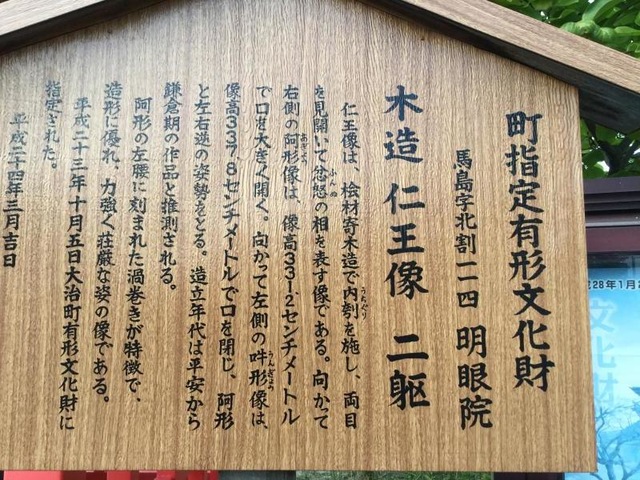 町指定有形文化財
馬島字北割一一四 明眼院
木造 仁王像 二躯
仁王像は、桧材寄木造で内刳を施し、両目
を見開いて忿怒の相を表す像である。向かって
右側の阿形像は、像高331.2センチメートル
で口を大きく開く。向かって左側の吽形像は、
像高337.8センチメートルで口を閉じ、阿形
と左右逆の姿勢をとる。造立年代は平安から
鎌倉期の作品と推測される。
阿形の左腰に刻まれた渦巻きが特徴で、
造形に優れ、力強く荘厳な姿の像である。
平成二十三年十月五日大治町有形文化財に
指定された。
平成二十四年三月吉日
文化財